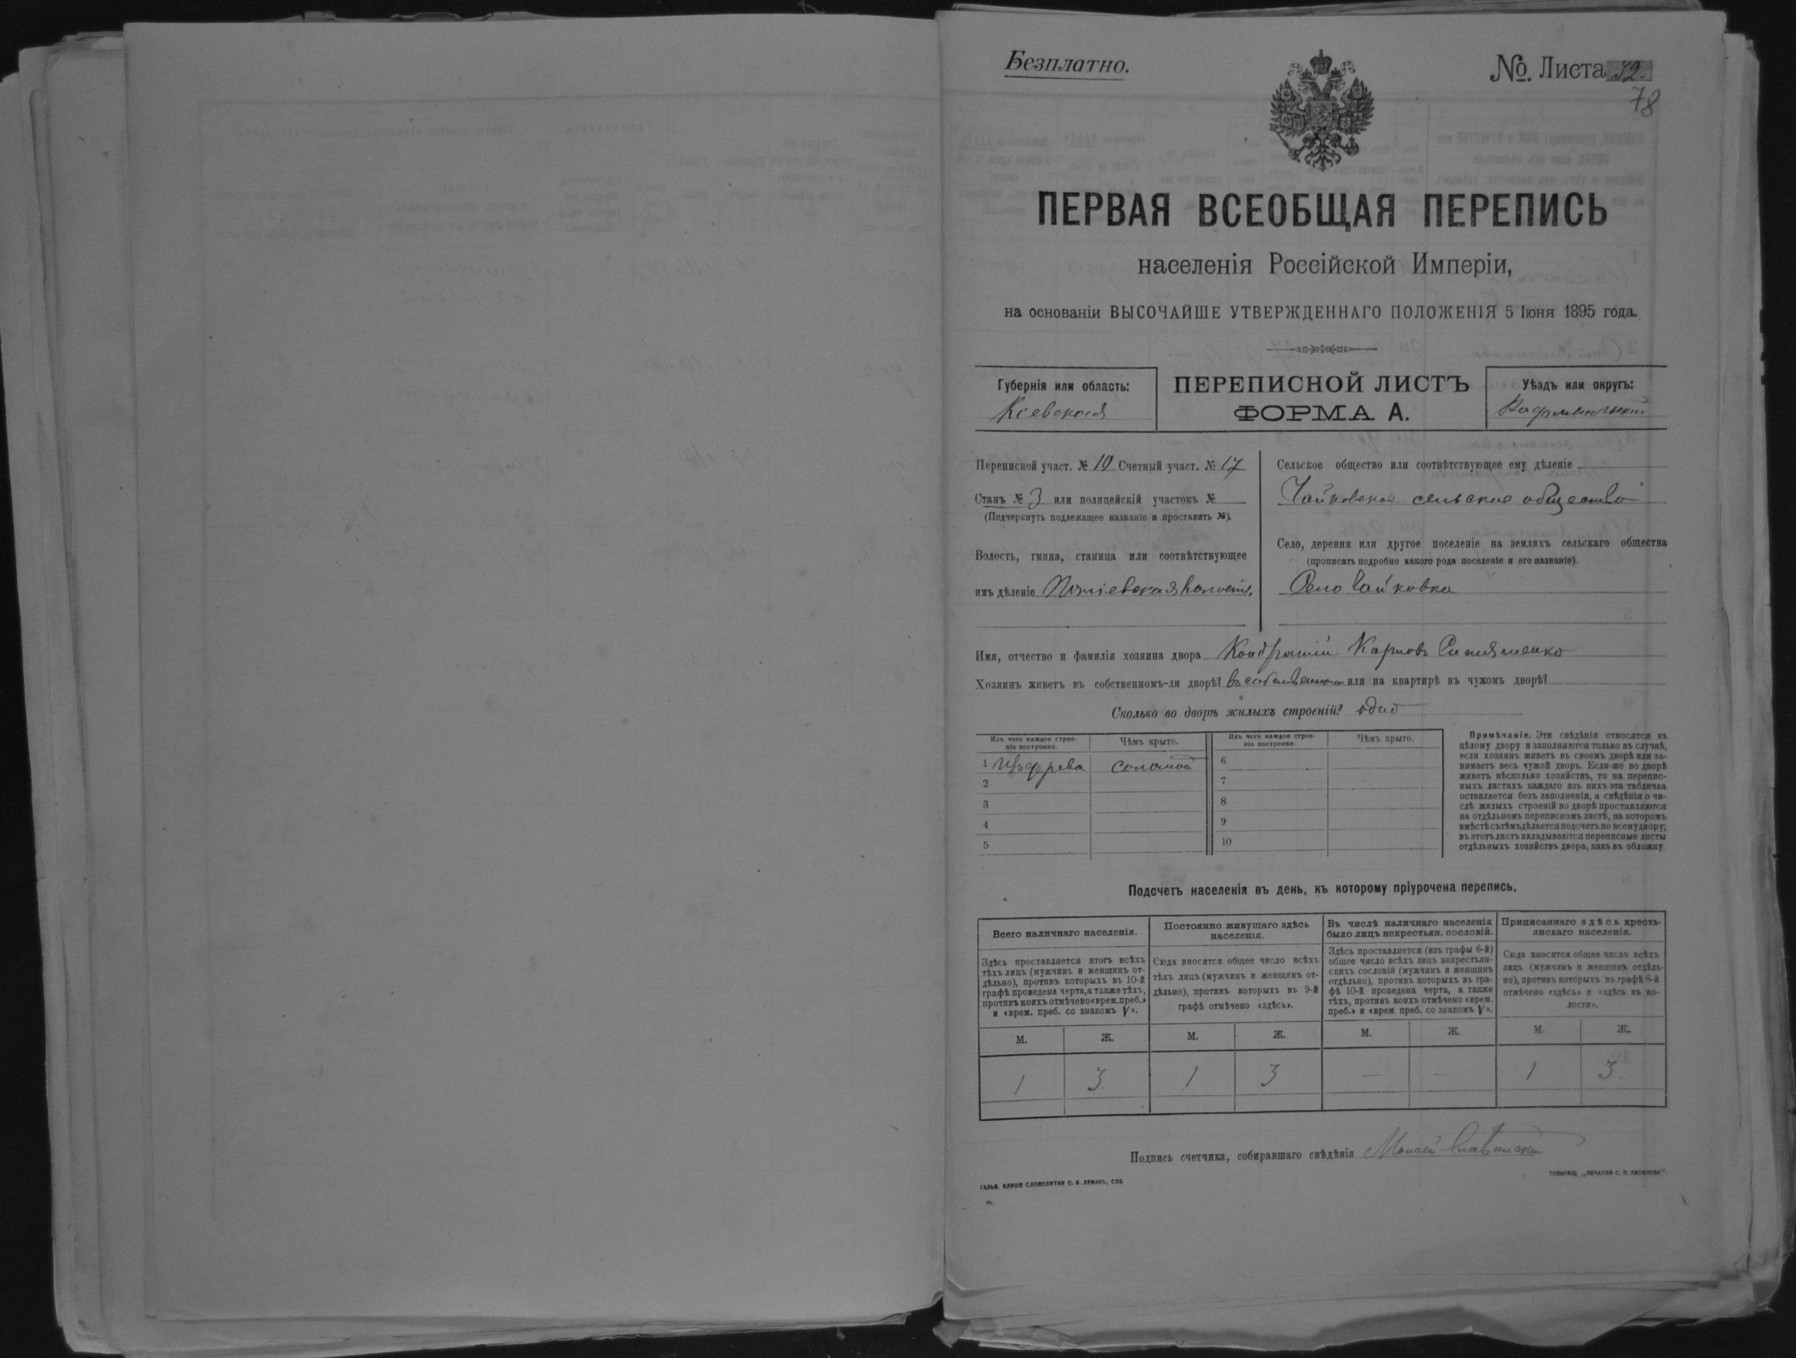 Безплатно.
№ Листа 32.
78
ПЕРВАЯ ВСЕОБЩАЯ ПЕРЕПИСЬ
населенія Россійской Имперіи,
на основаніи ВЫСОЧАЙШЕ УТВЕРЖДЕННАГО ПОЛОЖЕНІЯ 5 Іюня 1895 года.
Губернія или область:
Кіевская
ПЕРЕПИСНОЙ ЛИСТЪ
ФОРМА А.
Уѣздъ или округъ:
Радомысльскій
Переписной участ. № 10 Счетный участ. № 17
Станъ № 3 или полицейскій участокъ №
(Подчеркнуть подлежащее названіе и проставить №).
Волость, гмина, станица или соотвѣтствующее
имъ дѣленіе Потіевская волость.
Сельское общество или соотвѣтствующее ему дѣленіе
Чайковское сельское общество
Село, деревня или другое поселеніе на земляхъ сельскаго общества
(прописать подробно какого рода поселеніе и его названіе).
Село Чайковка
Имя, отчество и фамилія хозяина двора Кондратій Карповъ
Хозяинъ живетъ въ собственномъ-ли дворѣ? въ собственномъ или на квартирѣ въ чужомъ дворѣ?
Сколько во дворѣ жилыхъ строеній? одно
Изъ чего каждое строеніе построено.
Чѣмъ крыто.
Изъ чего каждое строеніе построено.
Чѣмъ крыто.
1 изъ дерева соломой
2
3
4
5
6
7
8
9
10
Примѣчаніе. Эти свѣдѣнія относятся къ
цѣлому двору и заполняются только въ случаѣ,
если хозяинъ живетъ въ своемъ дворѣ или за-
нимаетъ весь чужой дворъ. Если-же во дворѣ
живетъ нѣсколько хозяйствъ, то на перепис-
ныхъ листахъ каждаго изъ нихъ эта табличка
оставляется безъ заполненія, а свѣдѣнія о чи-
слѣ жилыхъ строеній во дворѣ проставляются
на отдѣльномъ переписномъ листѣ, на которомъ
вмѣстѣ съ тѣмъ дѣлается подсчетъ по всему двору;
въ этотъ листъ вкладываются переписные листы
отдѣльныхъ хозяйствъ двора, какъ въ обложку.
Подсчетъ населенія въ день, къ которому пріурочена перепись.
Всего наличнаго населенія.
Здѣсь проставляется итогъ всѣхъ
тѣхъ лицъ (мужчинъ и женщинъ от-
дѣльно), противъ которыхъ въ 10-й
графѣ проведена черта, а также тѣхъ,
противъ коихъ отмѣчено «врем. преб.»
и «врем. преб. со знакомъ V».
Постоянно живущаго здѣсь
населенія.
Сюда вносится общее число всѣхъ
тѣхъ лицъ (мужчинъ и женщинъ от-
дѣльно), противъ которыхъ въ 9-й
графѣ отмѣчено «здѣсь».
Въ числѣ наличнаго населенія
было лицъ некрестьян. сословій.
Здѣсь проставляется (изъ графы 6-й)
общее число всѣхъ лицъ некрестьян-
скихъ сословій (мужчинъ и женщинъ
отдѣльно), противъ которыхъ въ гра-
фѣ 10-й проведена черта, а также
тѣхъ, противъ коихъ отмѣчено «врем.
преб.» и «врем. преб. со знакомъ V».
Приписаннаго здѣсь кресть-
янскаго населенія.
Сюда вносится общее число всѣхъ
лицъ (мужчинъ и женщинъ отдѣль-
но), противъ которыхъ въ графѣ 8-й
отмѣчено «здѣсь» и «здѣсь въ во-
лости».
М. Ж. М. Ж. М. Ж. М. Ж.
1 3 1 3 — — 1 3.
Подпись счетчика, собиравшаго свѣдѣнія
ГАЛЬВ. КЛИШЕ СЛОВОЛИТНИ О. И. ЛЕМАНЪ, СПБ
ТОВАРИЩ. „ПЕЧАТНЯ С. П. ЯКОВЛЕВА“